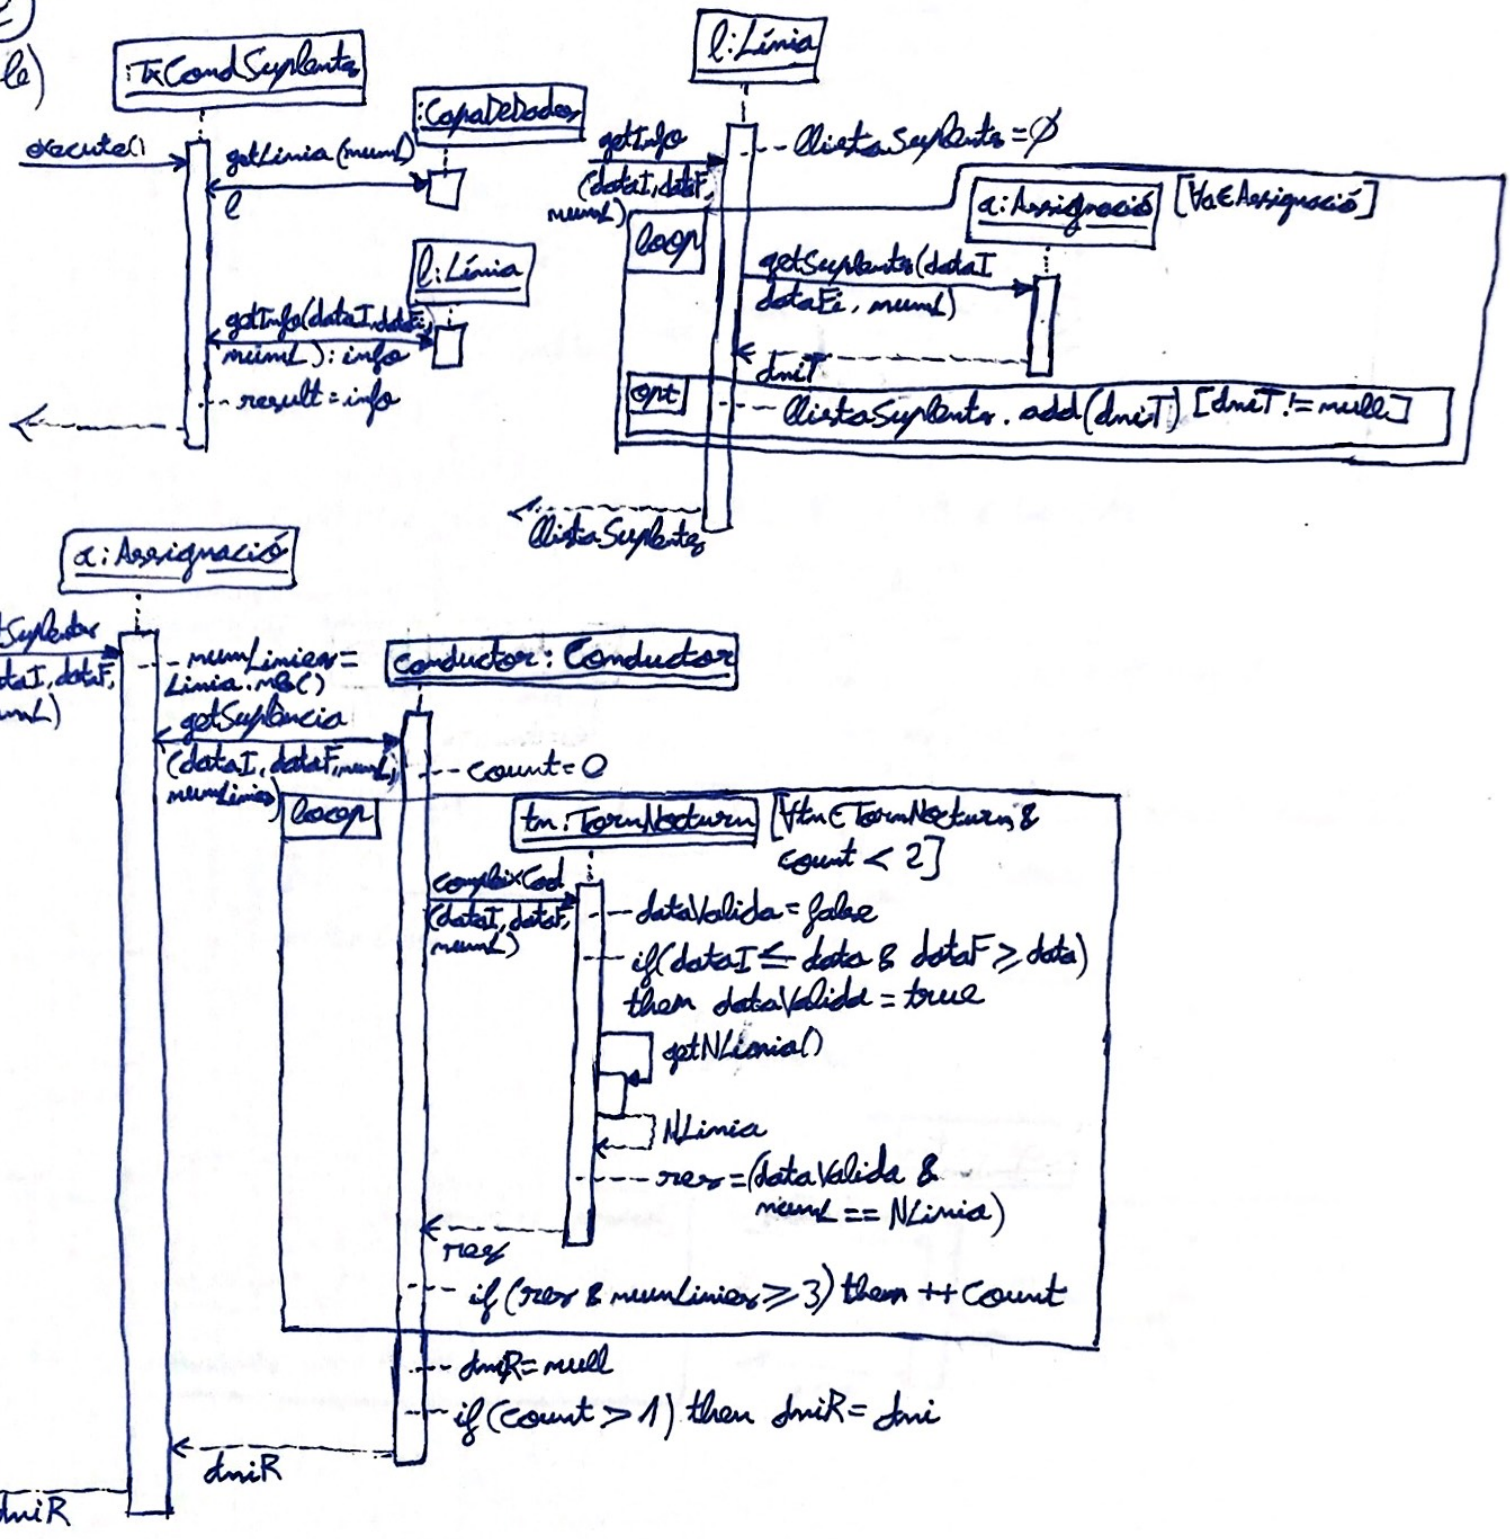 le)
:TxCondSuplents
execute()
getLinia(numL)
l
:CapaDeDades
l:Línia
getInfo(dataI,dataFi,
numL):info
result=info
l:Línia
getInfo
(dataI,dataF,
numL)
llistaSuplents=∅
loop
a:Assignació
[∀a∈Assignació]
getSuplents(dataI
dataFi, numL)
dniT
opt
llistaSuplents.add(dniT) [dniT!=null]
llistaSuplents
a:Assignació
tSuplents
taI,dataF,
umL)
numLinies=
Linia.nb()
getSuplència
(dataI,dataF,numL,
numLinies)
conductor:Conductor
count=0
loop
tn:TornNocturn
[∀tn∈TornNocturn &
count < 2]
(dataI,dataF,
numL)
dataValida=false
if(dataI ≤ data & dataF ≥ data)
then dataValida=true
getNLinia()
NLinia
res=(dataValida &
numL == NLinia)
res
if(res & numLinies ≥ 3) then ++count
dniR=null
if(count > 1) then dniR= dni
dniR
dniR